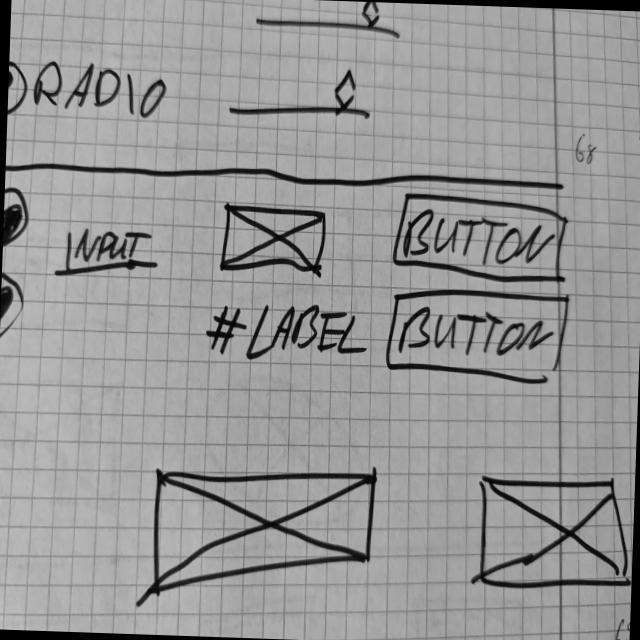 RADIO
68
INPUT BUTTON
#LABEL BUTTON